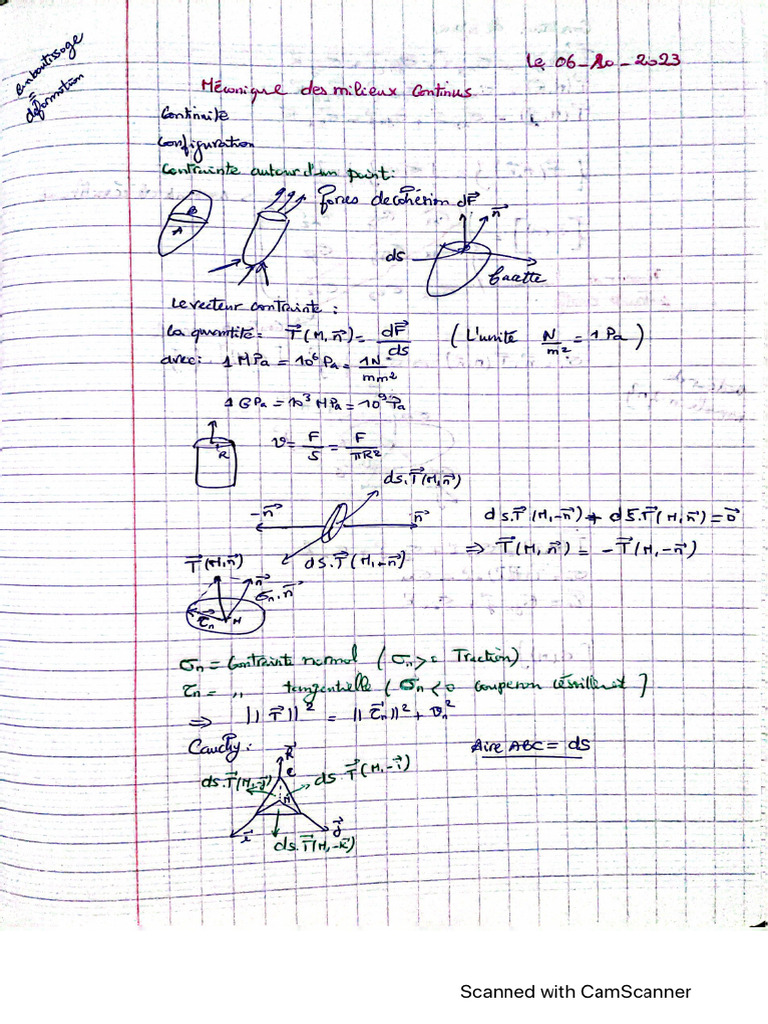 Le 06-10-2023
emboutissage
=
déformation
Mécanique des milieux Continus
Continuité
Configuration
Contrainte autour d'un point:
B
A
forces de cohésion dF⃗
n⃗
ds
facette
Le vecteur contrainte :
la quantité: T⃗(M,n⃗) = dF⃗/ds (L'unité N/m² = 1 Pa)
avec: 1 MPa = 10⁶ Pa = 1N/mm²
1 GPa = 10³ MPa = 10⁹ Pa
R
σ = F/S = F/πR²
ds.T⃗(M,n⃗)
-n⃗ n⃗
ds.T⃗(M,-n⃗) + ds.T⃗(M,n⃗) = 0⃗
ds.T⃗(M,-n⃗)
⇒ T⃗(M,n⃗) = -T⃗(M,-n⃗)
T⃗(M,n⃗)
n⃗
σn.n⃗
τn M
σn = Contrainte normal (σn > 0 Traction)
τn = ,, tangentielle (σn < 0
⇒ ||T⃗||² = ||τ⃗n||² + σn²
Cauchy: Aire ABC = ds
k⃗
C
ds.T⃗(M,-j⃗) ds.T⃗(M,-i⃗)
M
i⃗ j⃗
ds.T⃗(M,-k⃗)
Scanned with CamScanner